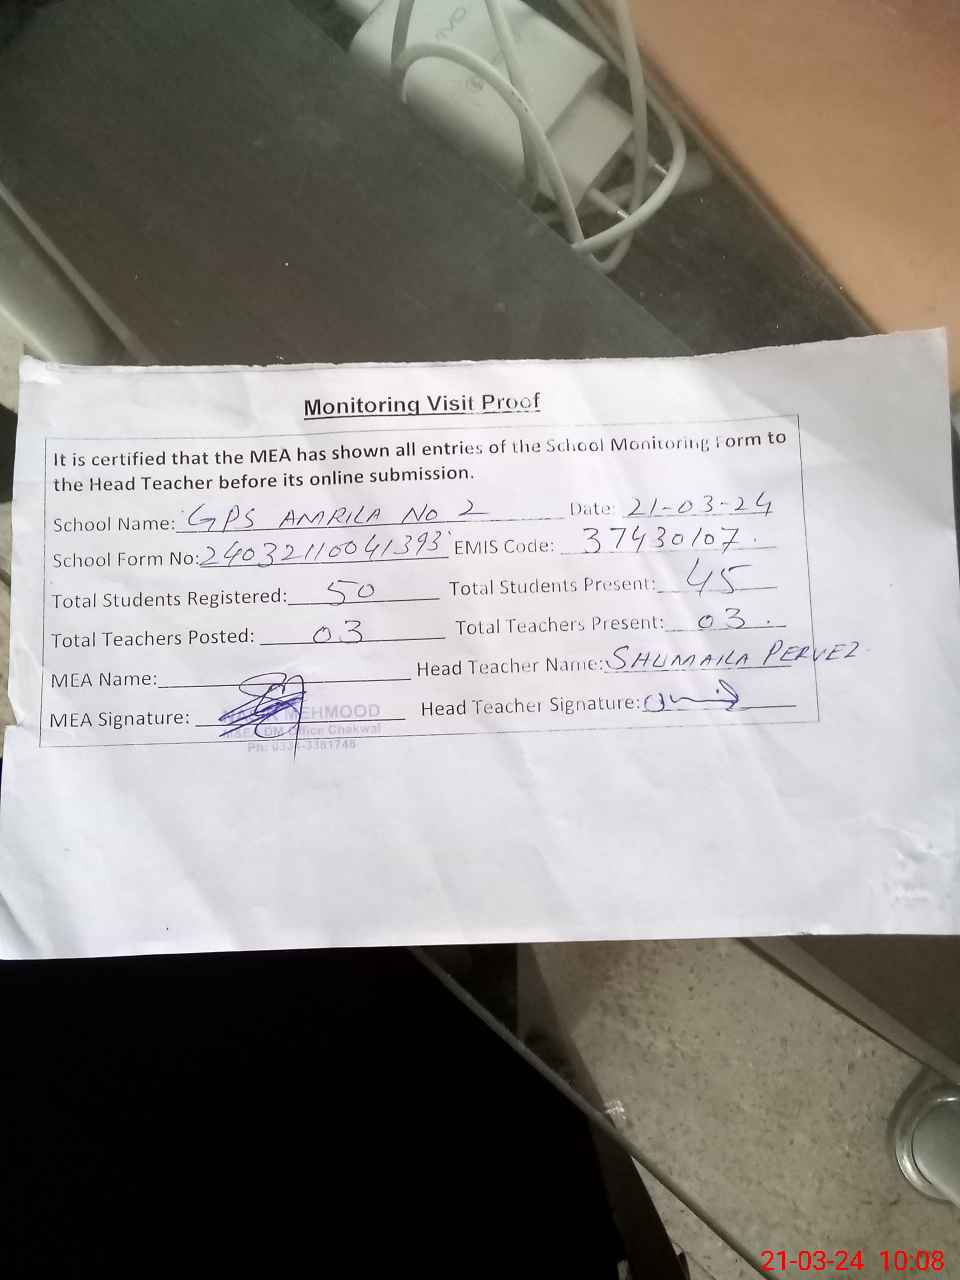 vivo
Monitoring Visit Proof
It is certified that the MEA has shown all entries of the School Monitoring Form to
the Head Teacher before its online submission.
School Name: GPS AMRILA No 2 Date: 21-03-24
School Form No: 24032110041393 EMIS Code: 37430107.
Total Students Registered: 50 Total Students Present: 45
Total Teachers Posted: 03 Total Teachers Present: 03.
MEA Name: Head Teacher Name: SHUMAILA PERVEZ
MEA Signature: Head Teacher Signature:
MEHMOOD
DM Office Chakwal
21-03-24 10:08